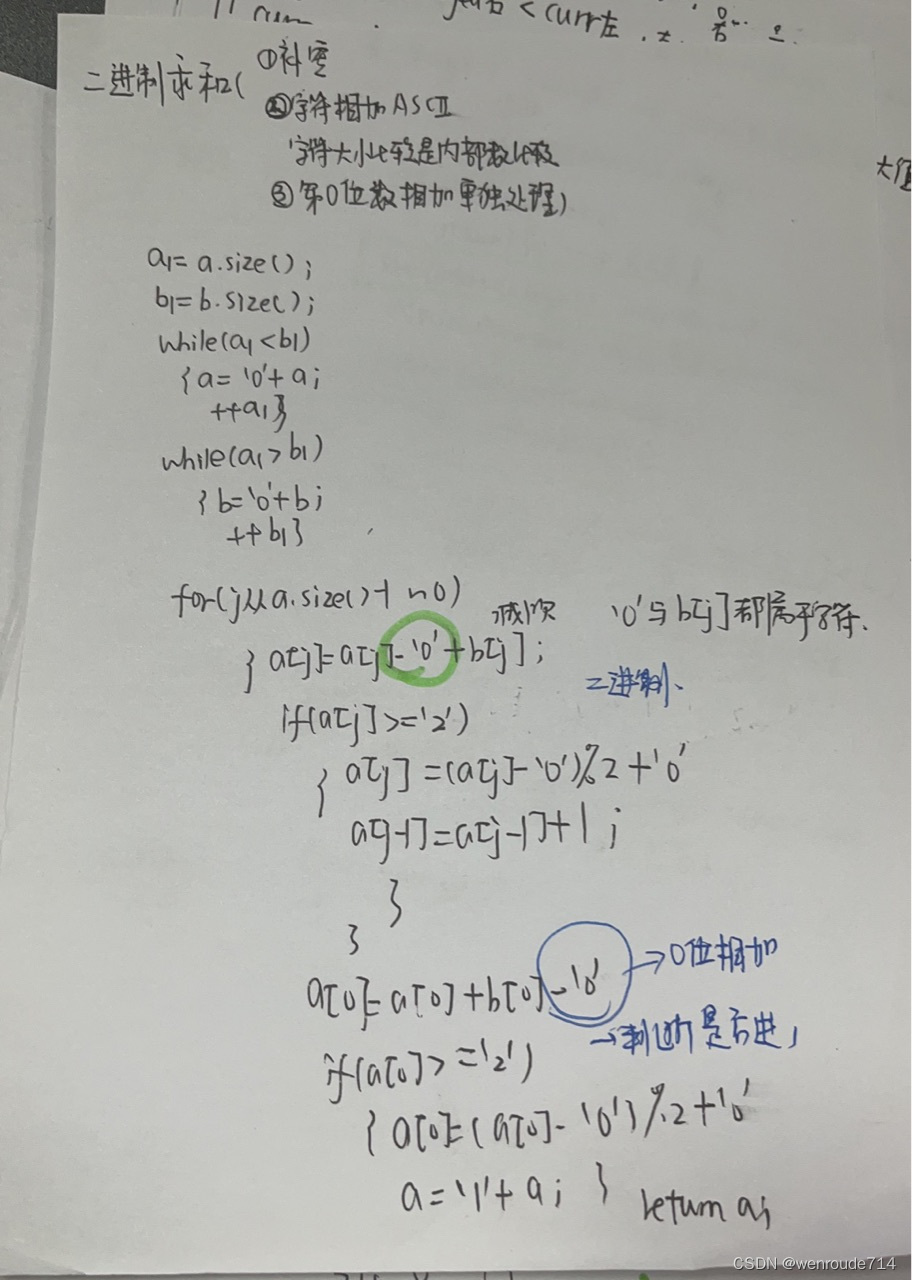 curr左
二进制求和(
①补零
②字符相加ASCII
字符大小比较是内部数比较
③第0位数相加单独处理)
大值
a1= a.size();
b1=b.size();
while(a1<b1)
{a='0'+a;
++a1}
while(a1>b1)
{b='0'+b;
++b1}
for(j从a.size()-1 ~0)
{a[j]=a[j]-'0'+b[j];
减1次
'0'与b[j]都属于字符.
二进制、
if(a[j]>='2')
{a[j]=(a[j]-'0')%2+'0'
a[j-1]=a[j-1]+1;
}
}
a[0]=a[0]+b[0]-'0'
→0位相加
→判断是否进1
if(a[0]>='2')
{a[0]=(a[0]-'0')%2+'0'
a='1'+a; }
return a;
CSDN @wenroude714